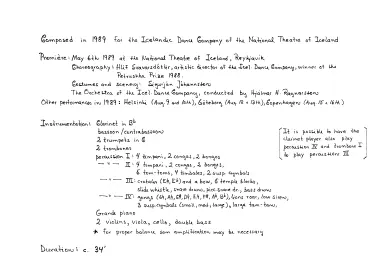 Composed in 1989 for the Icelandic Dance Company of the National Theatre of Iceland
Première: May 6th 1989 at the National Theatre of Iceland, Reykjavík
Choreography: Hlíf Svavarsdóttir, artistic director of the Icel. Dance Company, winner of the
Petrushka Prize 1988.
Costumes and scenery: Sigurjón Jóhannsson
The Orchestra of the Icel. Dance Company, conducted by Hjálmar H. Ragnarsson
Other performances in 1989: Helsinki (Aug. 9 and 10th), Göteborg (Aug. 12 + 13th), Copenhagen (Aug. 15 + 16th)
Instrumentation: Clarinet in Bb
bassoon/contrabassoon
2 trumpets in
2 trombones
percussion I: 4 timpani, 2 congas, 2 bongos
—"— II: 4 timpani, 2 congas, 2 bongos,
6 tom-toms, 4 timbales, 2 susp. cymbals
—"— III: crotales and a bow, 5 temple blocks,
slide whistle, snare drum, pics snare dr., bass drum
—"— IV: gongs, lions roar, low siren,
3 susp. cymbals (small, med, large), large tam-tam.
Grand piano
2 violins, viola, cello, double bass
* for proper balance some amplification may be necessary
[It is possible to have the
clarinet player also play
percussion IV and trombone I
to play percussion III.]
Duration: c. 34'